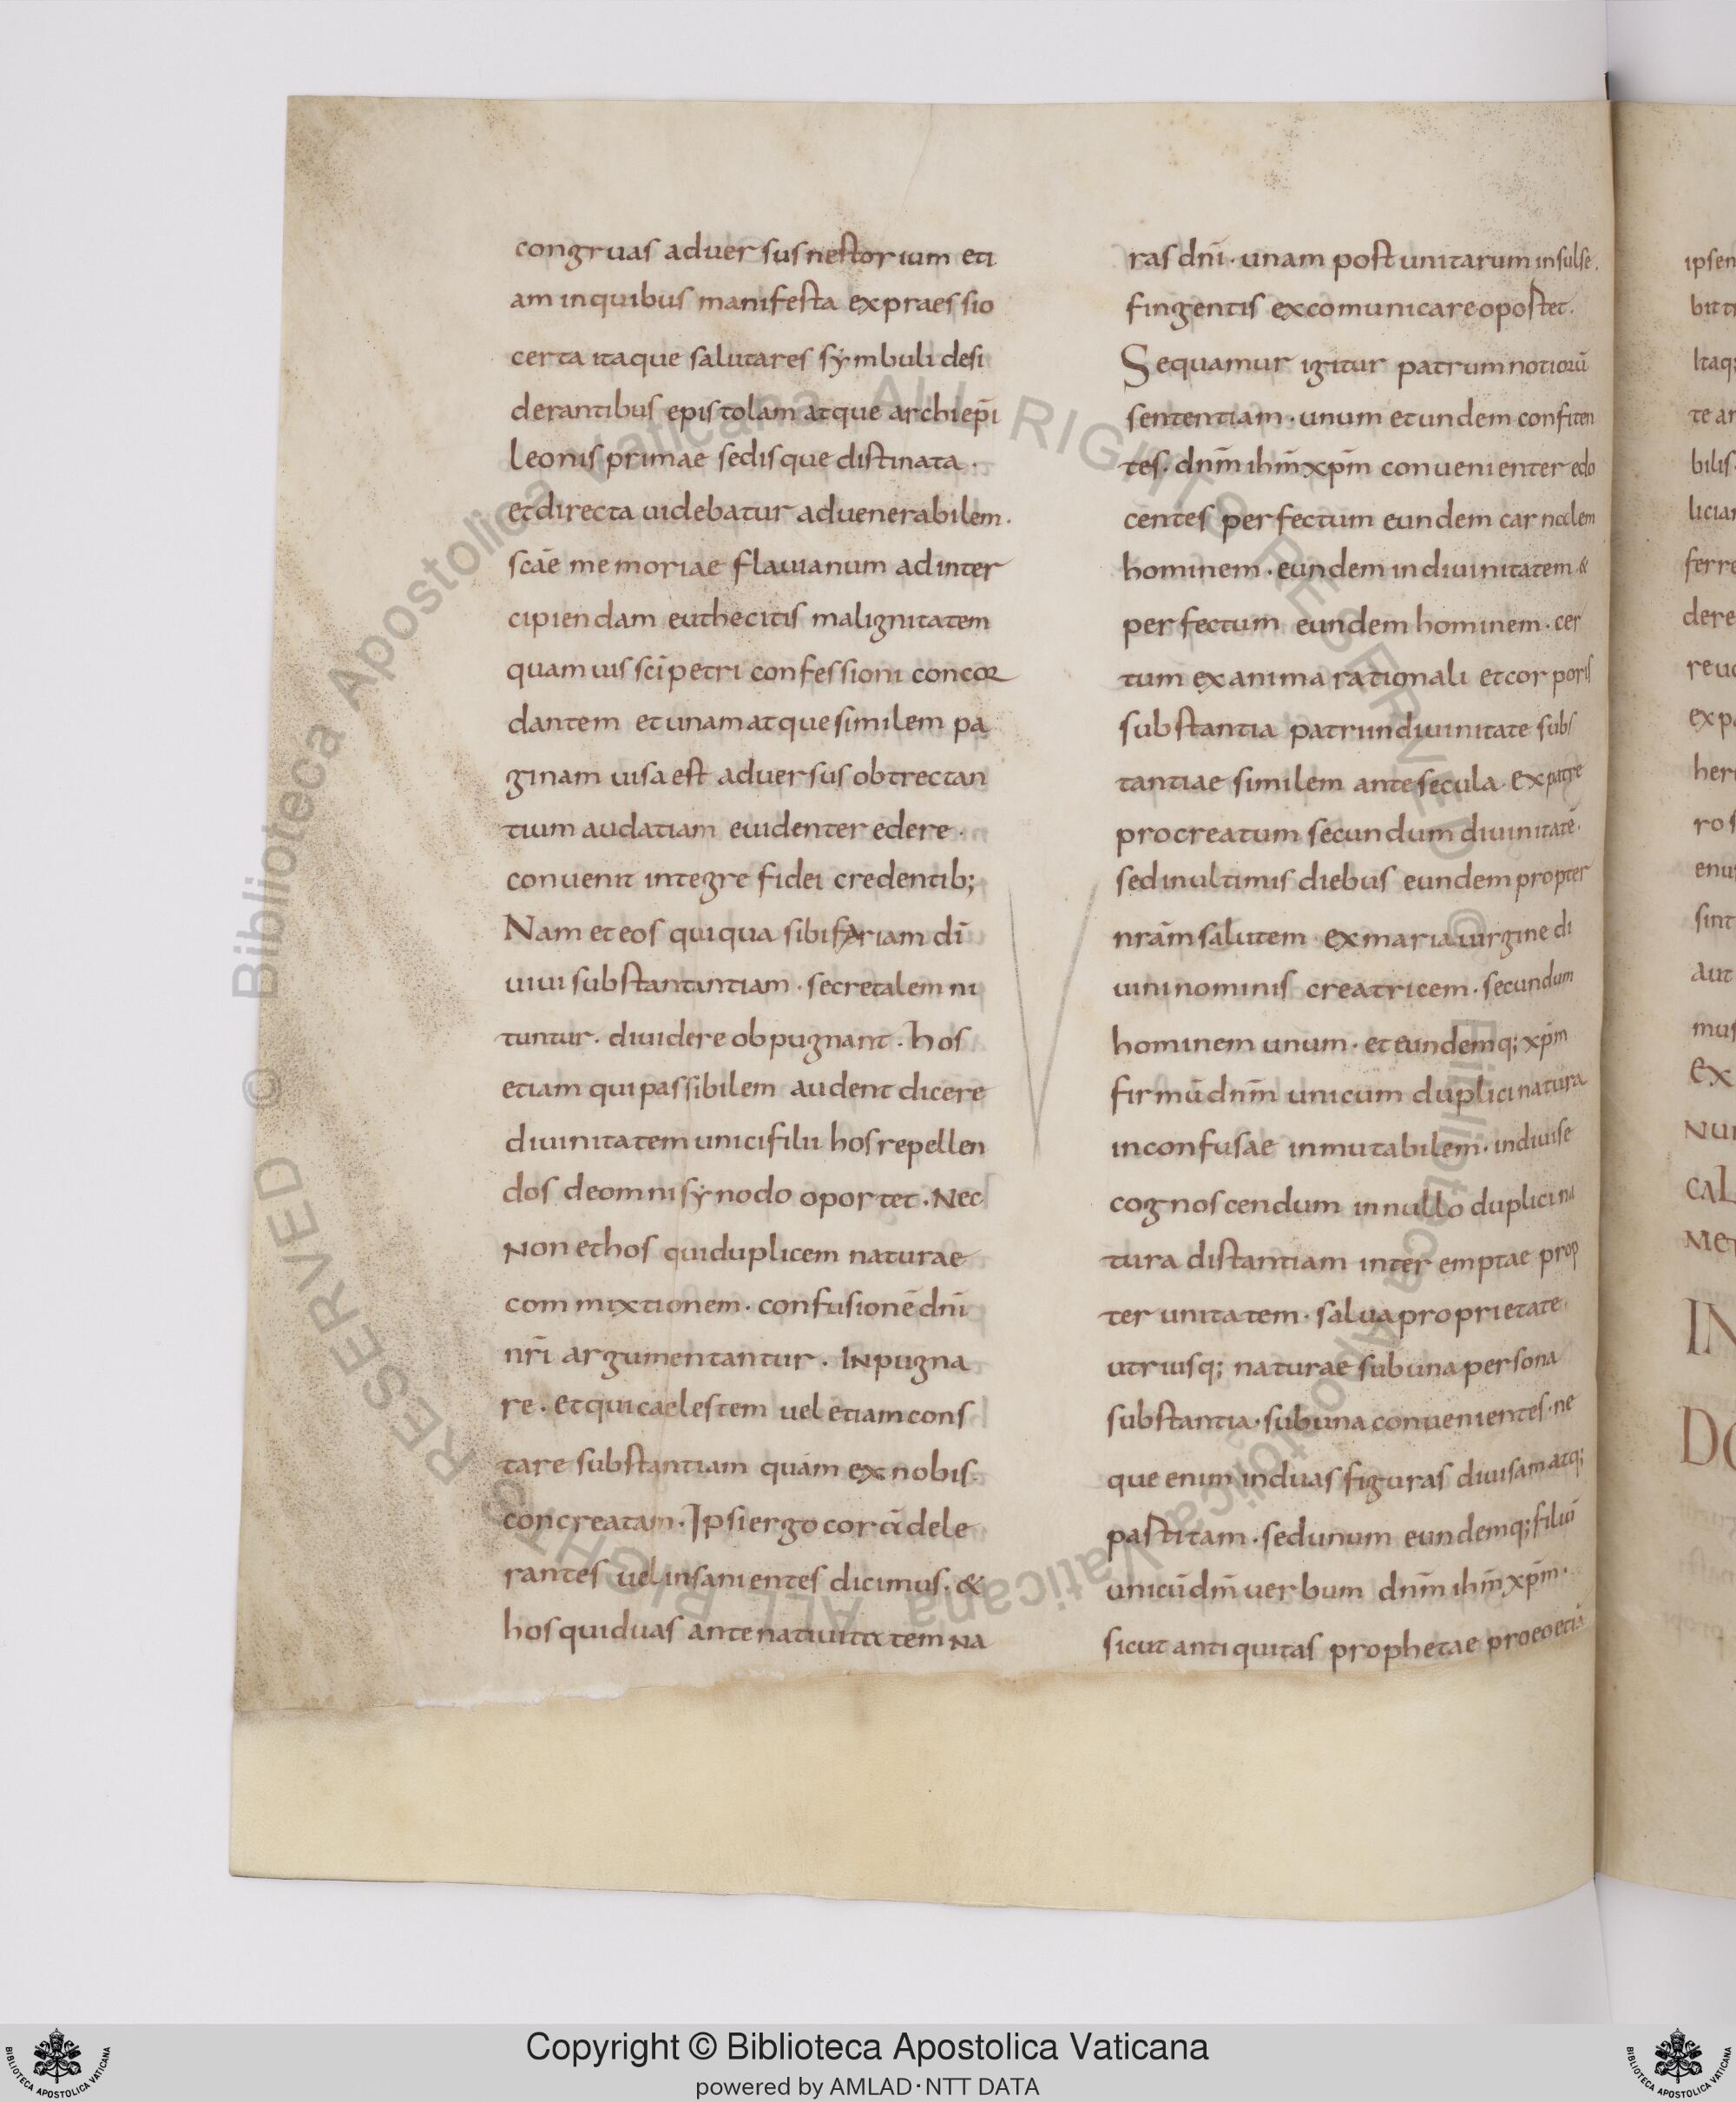 congruas aduersus nestorium eti
am inquibus manifesta expraessio
certa itaque salutares sẏmbuli desi
derantibus epistolam atque archiep̄i
leonis primae sedisque distinata ·
et directa uidebatur aduenerabilem ·
scāe memoriae flauianum ad inter
cipiendam euthecitis malignitatem
quamuis sc̄i petri confessioni concor
dantem et unam atque similem pa
ginam uisa est aduersus obtrectan
tium audatiam euidenter edere ·
conuenit integre fidei credentib;
Nam et eos qui qua sibi fariam di
uiui substantantiam · secretalem ni
tuntur · diuidere obpugnant · hos
etiam qui passibilem audent dicere
diuinitatem unici filii hos repellen
dos deomni sẏnodo oportet · Nec
Non et hos qui duplicem naturae
commixtionem · confusionē dn̄i
nr̄i argumentantur · INpugna
re · et qui caelestem uel etiam cons
tare substantiam quam ex nobis ·
concreatam · Ipsi ergo corā dele
rantes uel insanientes dicimus · &
hos qui duas ante natiuitatem Na
ras dn̄i · unam post unitarum insulse ·
fingentis excomunicare opostet ·
Sequamur igitur patrum notiorū
sententiam · unum et undem confiten
tes · dn̄m ihm̄ xpm̄ conuenienter edo
centes perfectum eundem carnalem
hominem · eundem in diuinitatem &
perfectum eundem hominem · cer
tum ex anima rationali et corporis
substantia patrun diuinitate subs
tantiae similem ante secula · ex patre
procreatum secundum diuinitatē ·
sed in ultimis diebus eundem propter
nrām salutem · ex maria uirgine di
uini nominis creatricem · secundum
hominem unum · et eundemq; xpm̄
firmū dn̄m unicum duplici natura
inconfusae inmutabilem · indiuise
cognoscendum in nullo duplici na
tura distantiam inter emptae prop
ter unitatem · salua proprietate ·
utriusq; naturae sub una persona
substantia · sub una conuenientes · ne
que enim in duas figuras diuisam atq;
pastitam · sed unum eundemq; filiū
unicū dm̄ uerbum dn̄m ihm̄ xpm̄ ·
sicut antiquitas prophetae proeo etiā
ipsen
bit ti
Itaq;
te ar
bilis
liciar
ferre
dere
reuo
exp
her
ros
enu
sint
aut
mus
Ex
Nu
CAL
Me
IN
Do
© Biblioteca Apostolica Vaticana ALL RIGHTS RESERVED
© Biblioteca Apostolica Vaticana ALL RIGHTS RESERVED
Copyright © Biblioteca Apostolica Vaticana
powered by AMLAD·NTT DATA
BIBLIOTECA APOSTOLICA VATICANA
BIBLIOTECA APOSTOLICA VATICANA